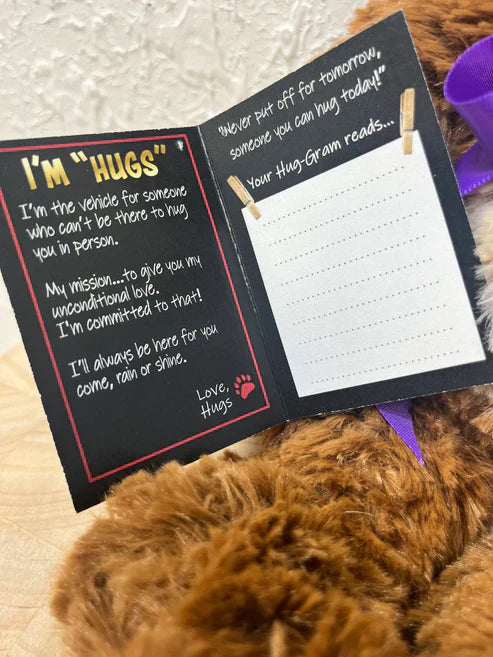 I'M "HUGS"
I'm the vehicle for someone
who can't be there to hug
you in person.
My mission...to give you my
unconditional love.
I'm committed to that!
I'll always be here for you
come, rain or shine.
Love,
Hugs
"Never put off for tomorrow,
someone you can hug today!"
Your Hug-Gram reads...